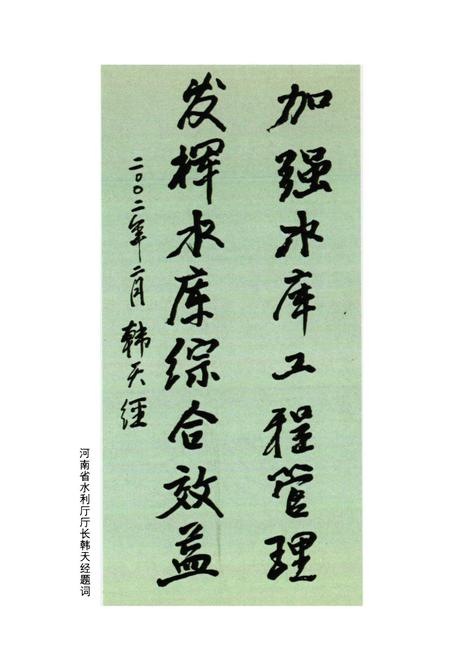 加强水库工程管理
发挥水库综合效益
二〇〇二年二月 韩天经
河南省水利厅厅长韩天经题词